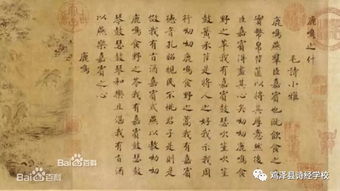 鹿鳴之什
毛詩小雅
鹿鳴燕羣臣嘉賓也既飲食之又
實幣帛筐篚以將其厚意然後忠
臣嘉賓得盡其心矣呦呦鹿鳴食
野之苹我有嘉賓鼓瑟吹笙吹笙
鼓簧承筐是將人之好我示我周
行呦呦鹿鳴食野之蒿我有嘉賓
德音孔昭視民不恌君子是則是
傚我有旨酒嘉賓式燕以敖呦呦
鹿鳴食野之芩我有嘉賓鼓瑟鼓
琴鼓瑟鼓琴和樂且湛我有旨酒
以燕樂嘉賓之心
鹿鳴
Bai百科
Bai百科
鸡泽县诗经学校